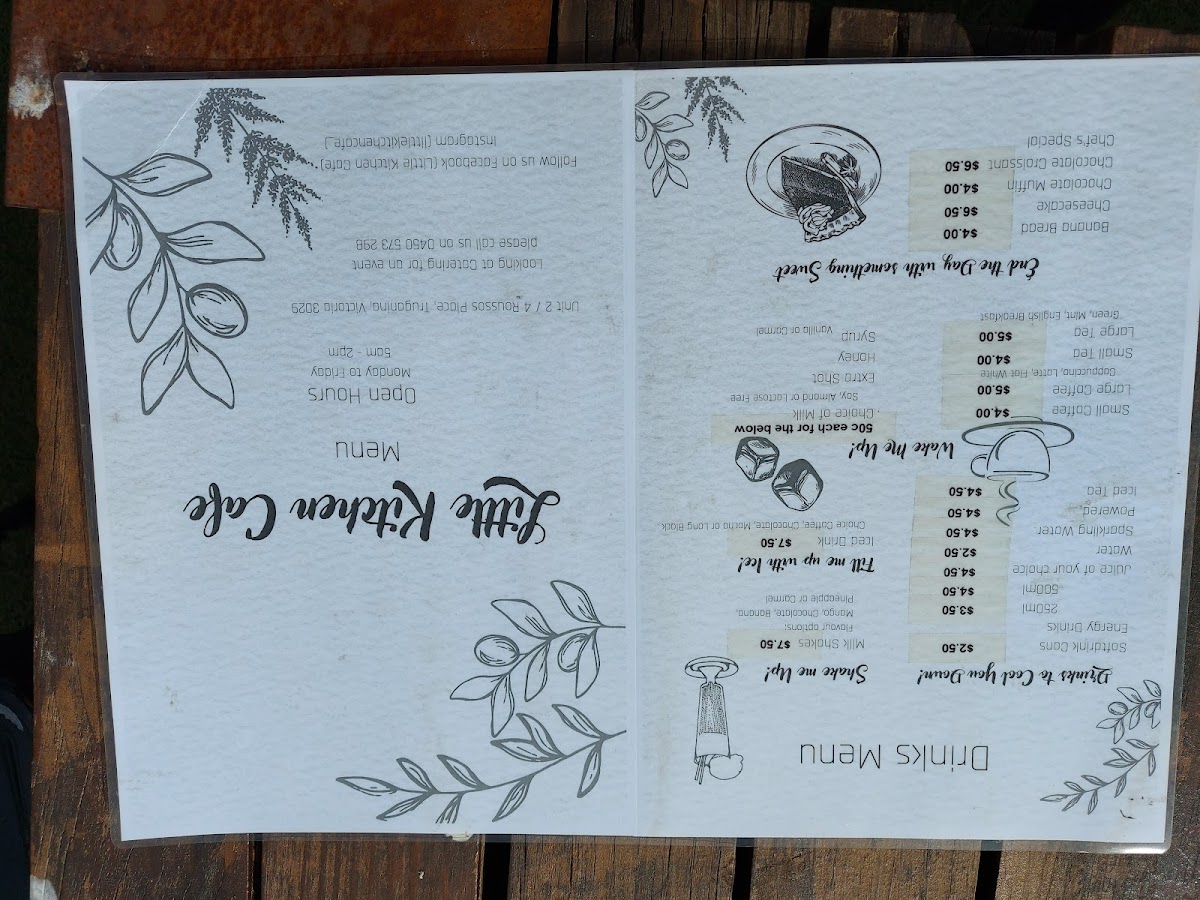 Drinks Menu
Drinks to Cool You Down!
Softdrink Cans $2.50
Energy Drinks
250ml $3.50
500ml $4.50
Juice of your choice $4.50
Water $2.50
Sparkling Water $4.50
Powered $4.50
Iced Tea $4.50
Shake me Up!
Milk Shakes $7.50
Flavour options:
Mango, Chocolate, Banana,
Pineapple or Carmel
Fill me up with Ice!
Iced Drink $7.50
Choice Coffee, Chocolate, Mocha or Long Black
Wake Me Up!
Small Coffee $4.00
Large Coffee $5.00
Cappuccino, Latte, Flat White
Small Tea $4.00
Large Tea $5.00
Green, Mint, English Breakfast
50c each for the below
Choice of Milk
Soy, Almond or Lactose Free
Extra Shot
Honey
Syrup
Vanilla or Carmel
End the Day with something Sweet
Banana Bread $4.00
Cheesecake $6.50
Chocolate Muffin $4.00
Chocolate Croissant $6.50
Chef's Special
Little Kitchen Cafe
Menu
Open Hours
Monday to Friday
5am - 2pm
Unit 2 / 4 Roussos Place, Truganina, Victoria 3029
Looking at Catering for an event
please call us on 0450 573 298
Follow us on Facebook (Little Kitchen Cafe)
Instagram (littlekitchencafe_)